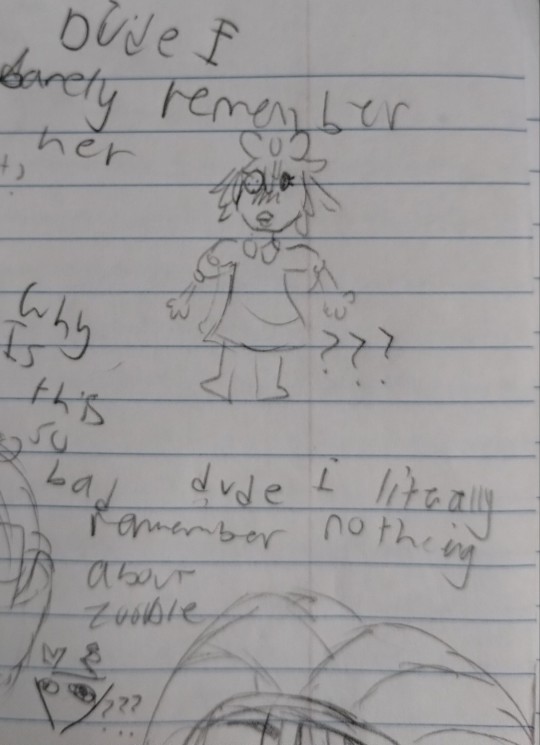 Dude I
barely remember
her
???
Why
Is
this
so
bad
dude I litaally
ramember notheing
about
zuobble
???